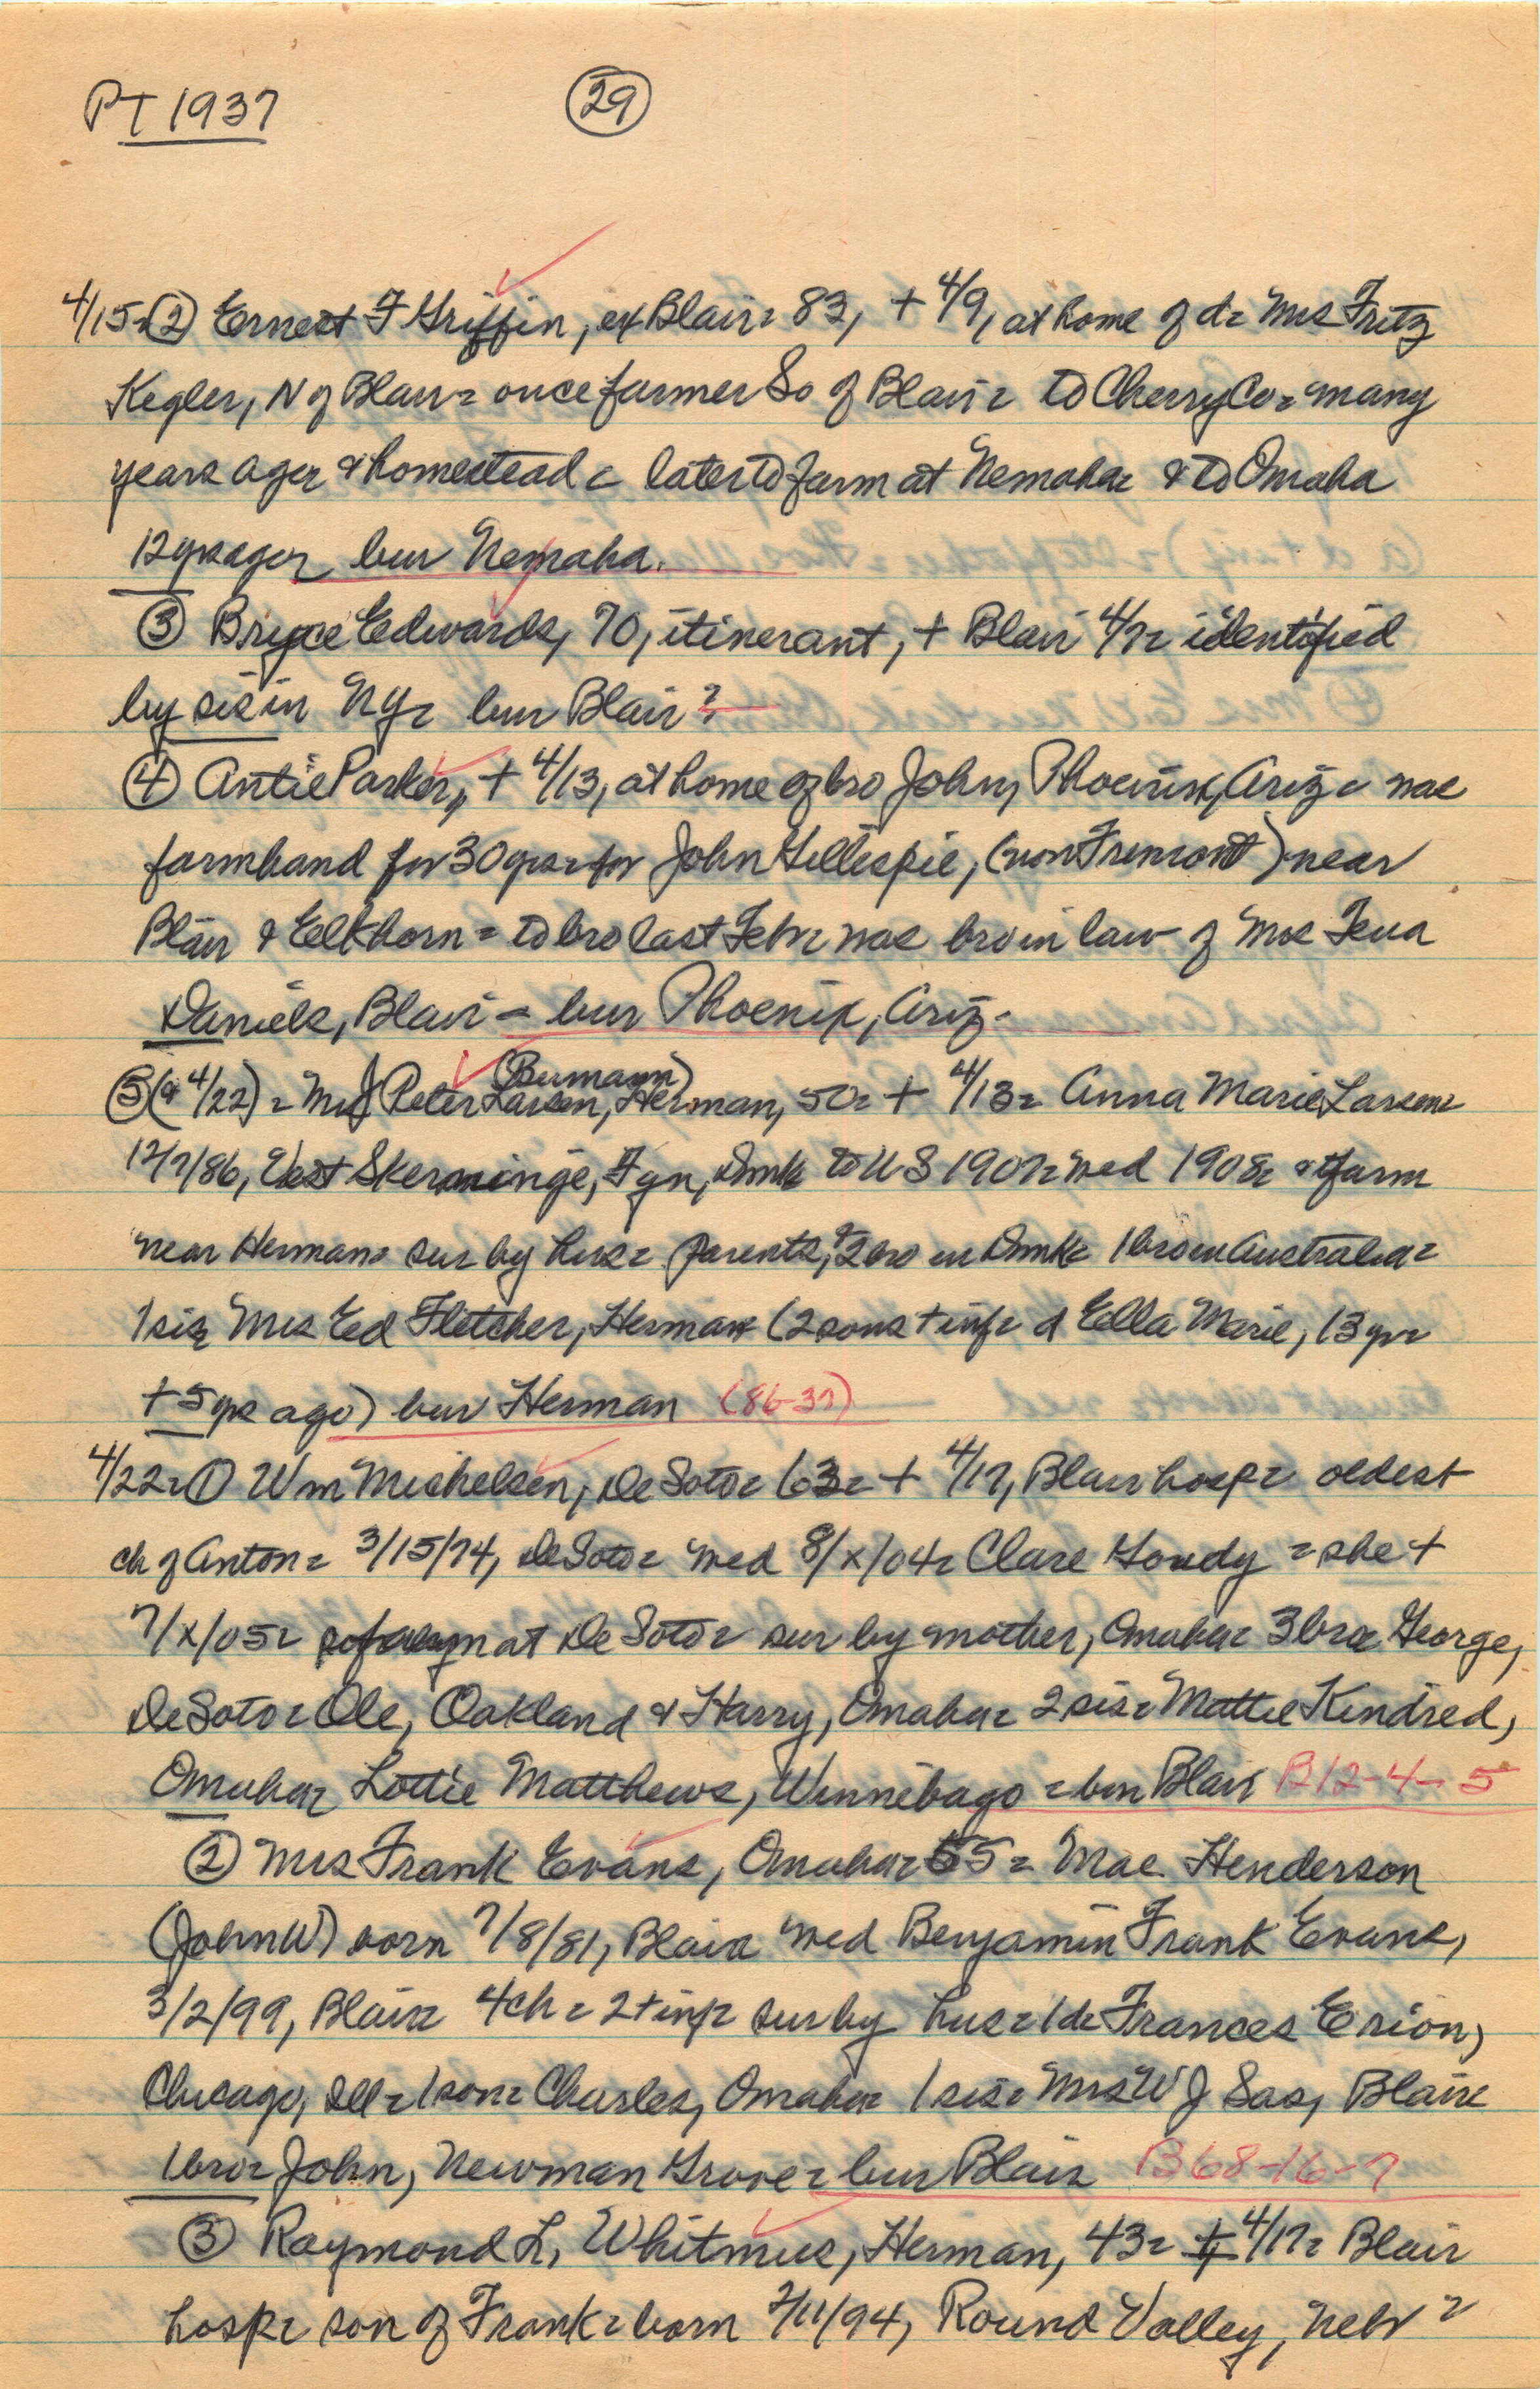 PT 1937 (29)
4/15 = (2) Ernest F Griffin, ex Blair = 83, + 4/9, at home of d = Mrs Fritz
Kegler, N of Blair = once farmer So of Blair = to Cherry Co = many
years ago = & homestead = later to farm at Nemaha = & to Omaha
12 yrs ago = bur Nemaha.
(3) Bryce Edwards, 70, itinerant, + Blair 4/7 = identified
by sis in NY = bur Blair?
(4) Antie Parker, + 4/13, at home of bro John, Phoenix, Ariz = was
farmhand for 30 yrs = for John Gillespie, (now Fremont) near
Blair & Elkhorn = to bro last Feb = was bro in law of Mrs Tena
Daniels, Blair = bur Phoenix, Ariz.
(Bumann)
(5) (& 4/22) = Mrs J Peter Larsen, Herman, 50 = + 4/13 = Anna Marie Larsen =
12/7/86, Vest Skerninge, Fyn, Dmk to US 1907 = wed 1908 = & farm
near Herman = sur by hus = parents, & 2 bro in Dmk = 1 bro in Australia =
1 sis = Mrs Ed Fletcher, Herman (2 sons + inf = d Ella Marie, 13 yr =
+ 5 yrs ago) bur Herman (86-37)
4/22 = (1) Wm Michelsen, De Soto = 63 = + 4/17, Blair hosp = oldest
ch of Anton = 3/15/74, De Soto = wed 8/x/04 = Clare Gowdy = she +
7/x/05 = at De Soto = sur by mother, Omaha = 3 bro = George,
De Soto = Ole, Oakland & Harry, Omaha = 2 sis = Mattie Kindred,
Omaha = Lottie Matthews, Winnebago = bur Blair B12-4-5
(2) Mrs Frank Evans, Omaha = 55 = Mae Henderson
(John W) born 7/8/81, Blair = wed Benjamin Frank Evans,
3/2/99, Blair = 4 ch = 2 + inf = sur by hus = 1 d = Frances Erion,
Chicago, Ill = 1 son = Charles, Omaha = 1 sis = Mrs W J Sas, Blair =
1 bro = John, Newman Grove = bur Blair = B68-16-7
(3) Raymond L. Whitmus, Herman, 43 = + 4/17 = Blair
hosp = son of Frank = born 2/11/94, Round Valley, Nebr =